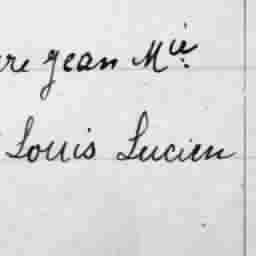 re Jean Mie
Louis Lucien